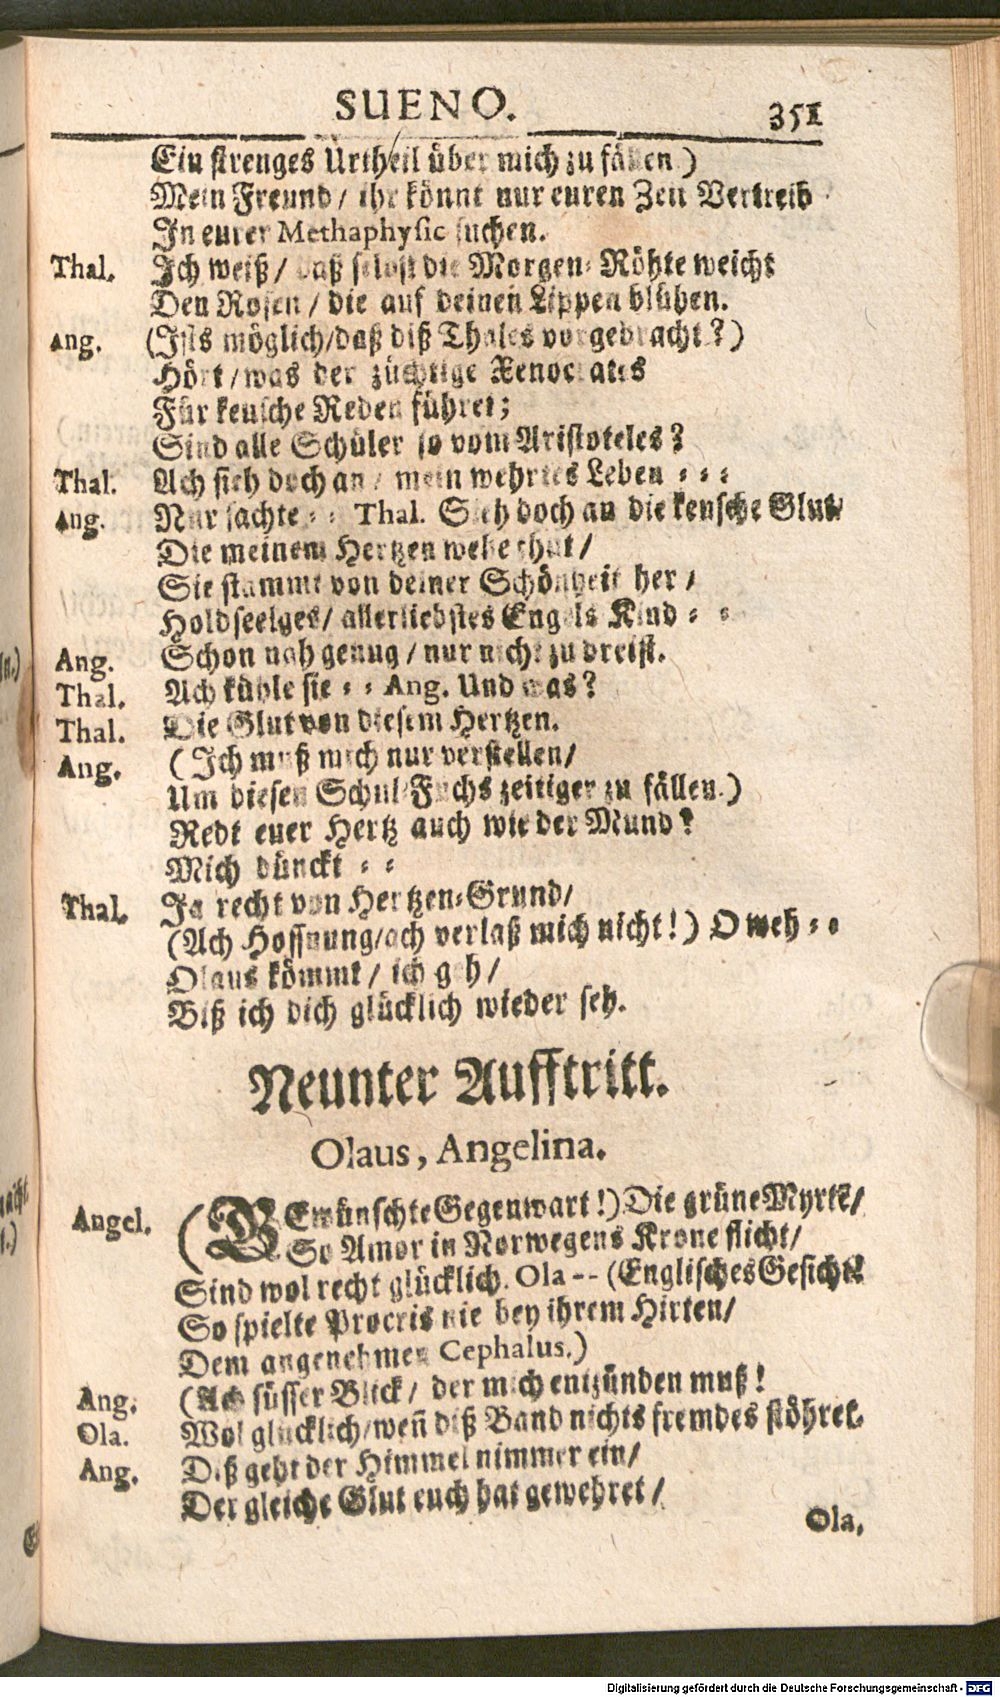 SUENO. 351
Ein strenges Urtheil über mich zu fällen.)
Mein Freund / ihr könnt nur euren Zeit Vertreib
In eurer Methaphysic suchen.
Thal. Ich weiß / daß selbst die Morgen-Röhte weicht
Den Rosen / die auf deinen Lippen blühen.
Ang. (Ists möglich/daß diß Thales vorgebracht?)
Hört / was der züchtige Xenocrates
Für keusche Reden führet;
Sind alle Schüler so vom Aristoteles?
Thal. Ach sieh doch an / mein wehrtes Leben - - -
Ang. Nur sachte - - Thal. Sieh doch an die keusche Glut/
Die meinem Hertzen wehe thut /
Sie stammt von deiner Schönheit her /
Holdseelges / allerliebstes Engels Kind - -
Ang. Schon nah genug / nur nicht zu dreist.
Thal. Ach kühle sie - - Ang. Und was?
Thal. Die Glut von diesem Hertzen.
Ang. (Ich muß mich nur verstellen/
Um diesen Schul-Fuchs zeitiger zu fällen.)
Redt euer Hertz auch wie der Mund?
Mich dünckt - -
Thal. Ja recht von Hertzen-Grund/
(Ach Hoffnung/ach verlaß mich nicht!) O weh - -
Olaus kömmt / ich geh /
Biß ich dich glücklich wieder seh.
Neunter Aufftritt.
Olaus, Angelina.
Angel. (GEwünschte Gegenwart!) Die grüne Myrte/
So Amor in Norwegens Krone flicht/
Sind wol recht glücklich. Ola -- (Englisches Gesicht!
So spielte Procris nie bey ihrem Hirten/
Dem angenehmen Cephalus.)
Ang. (Ach süsser Blick / der mich entzünden muß!
Ola. Wol glücklich/wen̄ diß Band nichts fremdes stöhret.
Ang. Diß geht der Himmel nimmer ein/
Der gleiche Glut euch hat gewehret /
Ola.
Digitalisierung gefördert durch die Deutsche Forschungsgemeinschaft - DFG